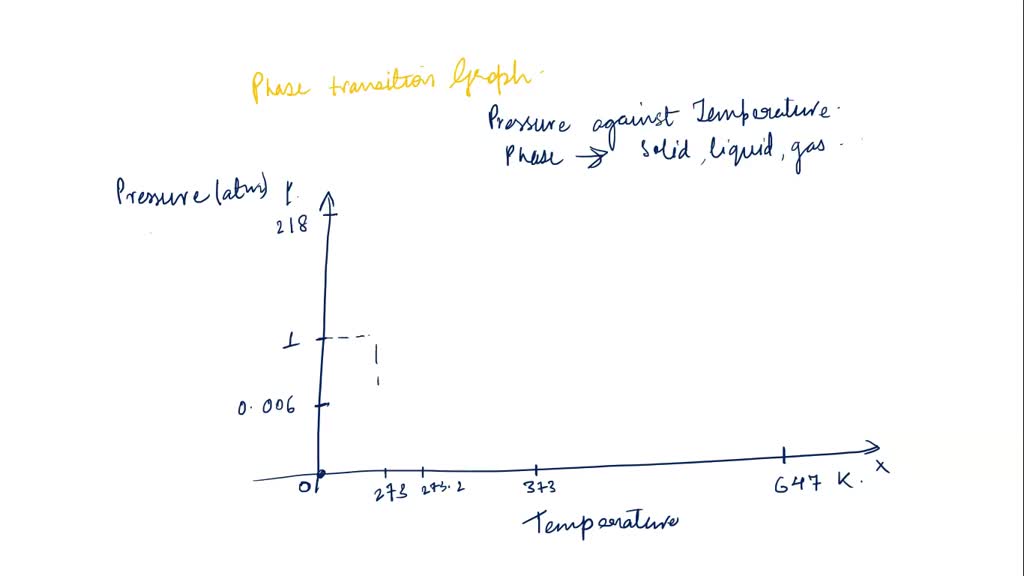 Phase transition Graph.
Pressure against Temperature.
Phase → solid, liquid, gas.
Pressure (atm)
218
1
0.006
0
273 273.2 373 647 K. X
Temperature